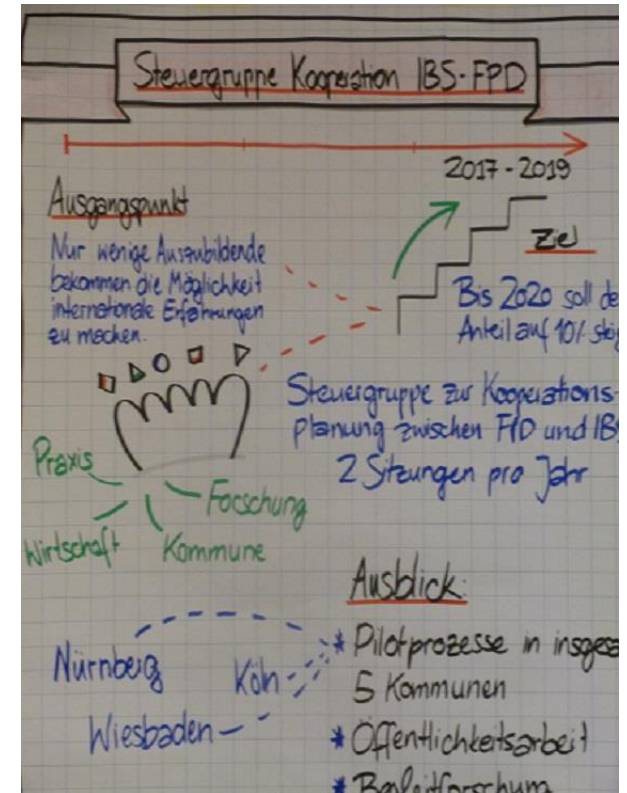 Steuergruppe Kooperation IBS-FPD
2017 - 2019
Ausgangspunkt
Nur wenige Auszubildende
bekommen die Möglichkeit
internationale Erfahrungen
zu machen.
Ziel
Bis 2020 soll de
Anteil auf 10% steig
Steuergruppe zur Kooperations-
planung zwischen FPD und IBS
2 Sitzungen pro Jahr
Praxis
Forschung
Wirtschaft
Kommune
Ausblick:
* Pilotprozesse in insgesa
5 Kommunen
* Öffentlichkeitsarbeit
* Begleitforschung
Nürnberg
Köln
Wiesbaden